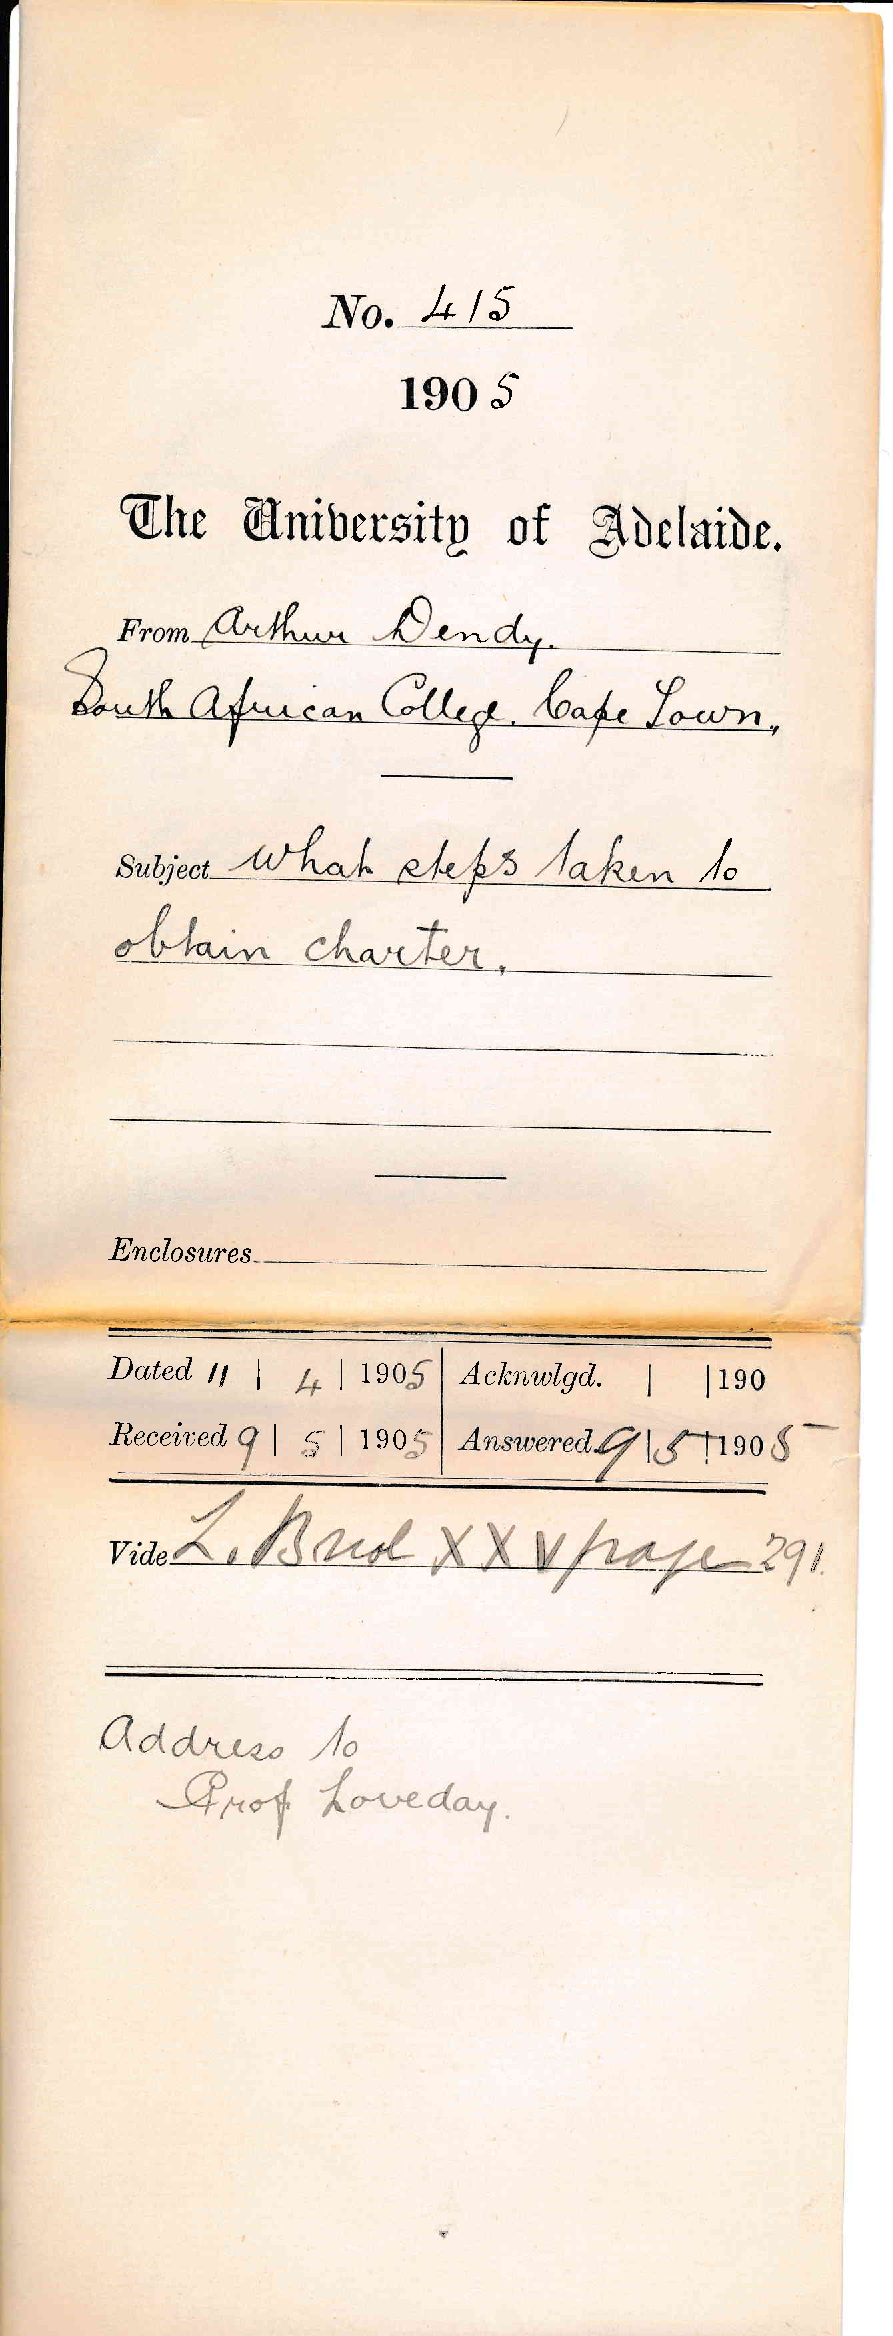 No. 415
1905
The University of Adelaide.
From Arthur Dendy.
South African College. Cape Town.
Subject What steps taken to
obtain charter.
Enclosures
Dated 11 | 4 | 1905 Acknwlgd. | |190
Received 9 | 5 | 1905 Answered 9|5|1905
Vide L. XXV page 291.
Address to
Prof Loveday.